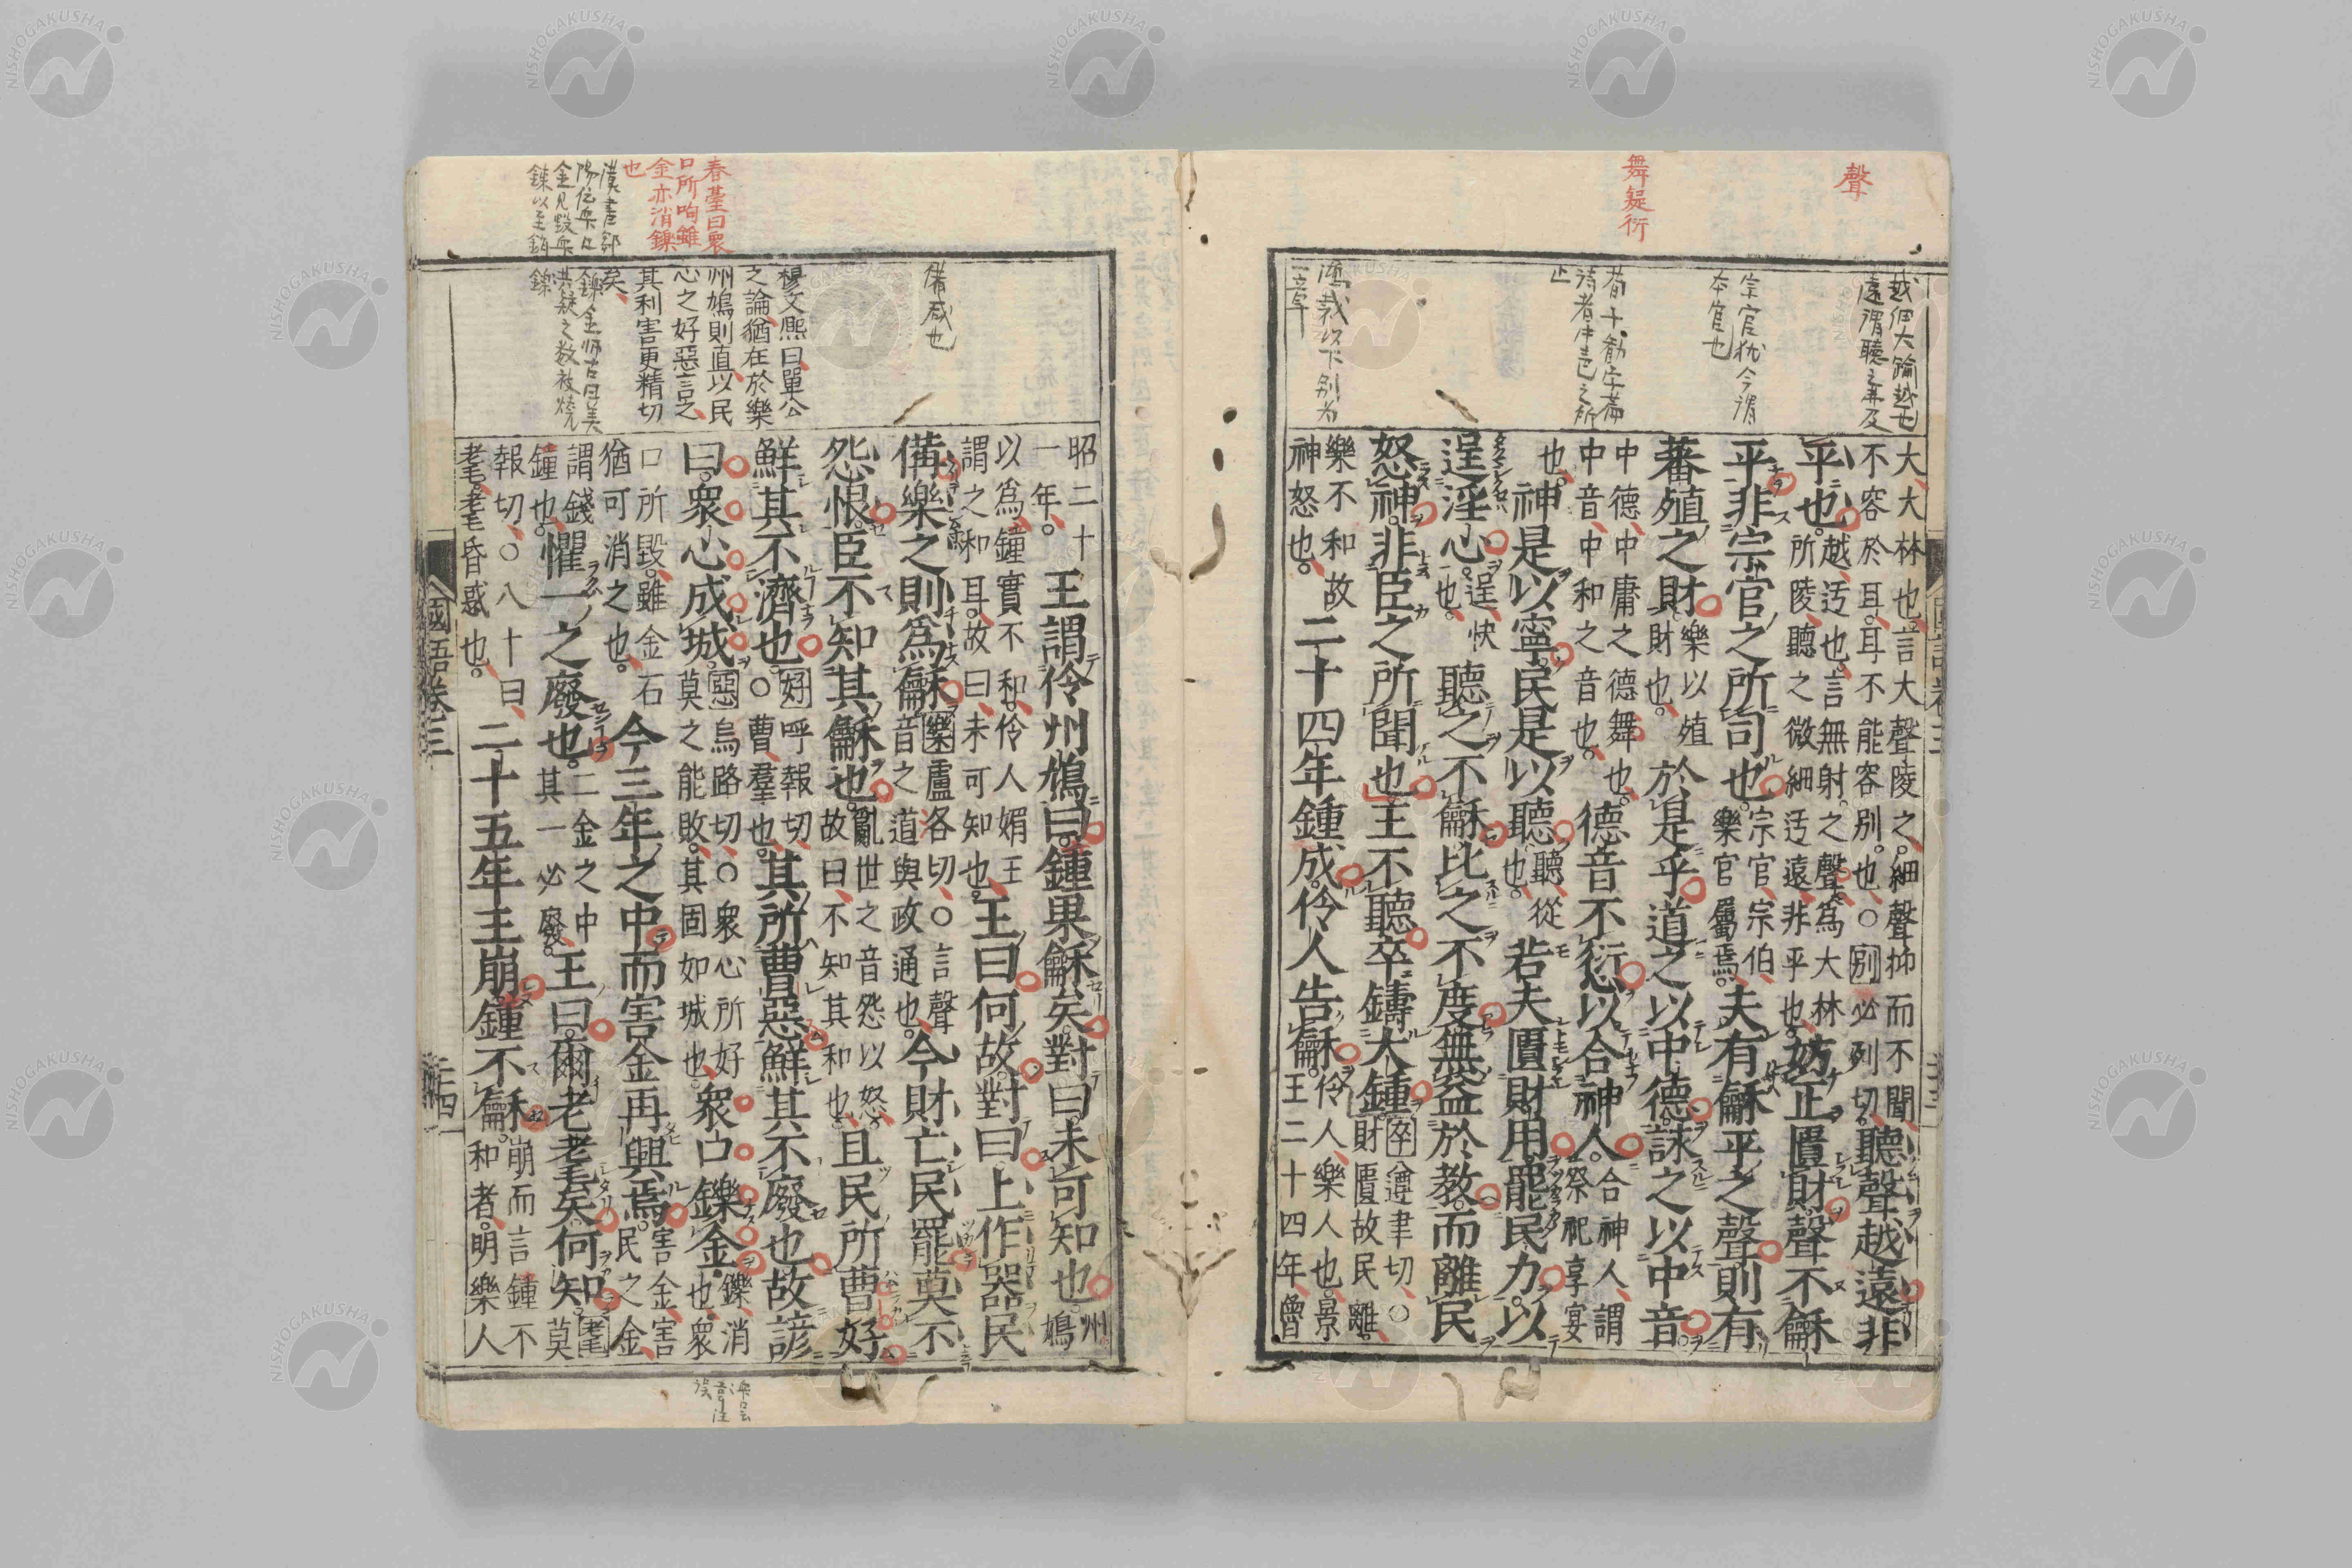 聲
舞疑衍
越細大踰越也
遠謂聽之弗及
宗官猶今謂
本官也
荀十勸学篇
詩者中声之所
止
以下別為
一章
大大林也言大聲陵之細聲抑而不聞
不容於耳耳不能容別也○別必列切
聽聲越遠非
平也
越迃也言無射之聲為大林
所陵聽之微細迃遠非平也
妨正匱財聲不龢
平非宗官之所司也
宗官宗伯
樂官屬焉
夫有龢平之聲則有
蕃殖之財
樂以殖
財也
於是乎道之以中德詠之以中音
中德中庸之德舞也
中音中和之音也
德音不愆以合神人
合神人謂
祭祀享宴
也
神是以寧民是以聽
聽從
也
若夫匱財用罷民力以
逞淫心
逞快
也
聽之不龢比之不度無益於教而離民
怒神非臣之所聞也王不聽卒鑄大鍾
卒遵聿切○
財匱故民離
樂不和故
神怒也
二十四年鍾成伶人告龢
伶人樂人也景
王二十四年魯
國語卷三
備咸也
春臺曰眾
口所呴雖
金亦消鑠
也
穆文熙曰單公
之論猶在於樂
州鳩則直以民
心之好惡言之
其利害更精切
矣
昭二十
一年
王謂伶州鳩曰鍾果龢矣對曰未可知也
州
鳩
以爲鐘實不和伶人媚王
謂之和耳故曰未可知也
王曰何故對曰上作器民
備樂之則爲龢
樂盧洛切○言聲
音之道與政通也
今財亡民罷莫不
怨恨臣不知其龢也
亂世之音怨以怒
故曰不知其和也
且民所曹好
鮮其不濟也
好呼報切
○曹羣也
其所曹惡鮮其不廢也故諺
曰衆心成城
惡烏路切○衆心所好
莫之能敗其固如城也
衆口鑠金
鑠消
也衆
口所毀雖金石
猶可消之也
今三年之中而害金再興焉
害金害
民之金
謂錢
鐘也
懼一之廢也
二金之中
其一必廢
王曰爾老耄矣何知
耄莫
報切○八十曰
耄耄昏惑也
二十五年王崩鍾不龢
崩而言鍾不
和者明樂人
國語卷三